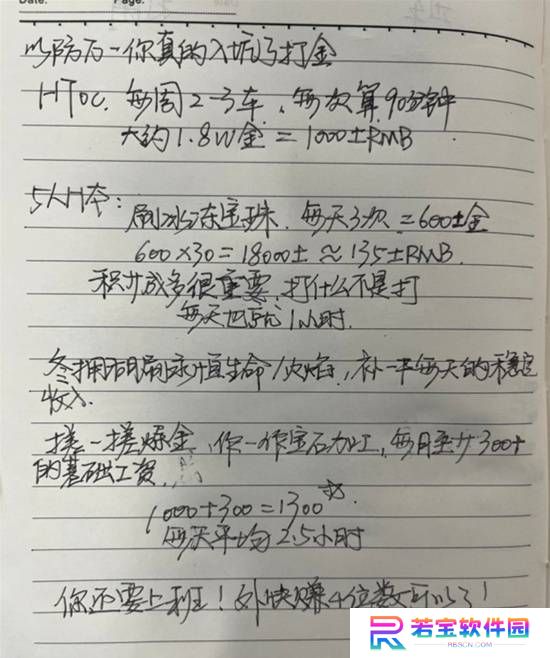 Date:
Page:
以防万一你真的入坑了打金
HTOC. 每周2-3车, 每次算90分钟
大约1.8W金 = 1000±RMB
5人H本:
刷冰冻宝珠. 每天3次 = 600±金
600×30=18000± ≈ 135±RMB.
积少成多很重要, 打什么不是打
每天也就1小时.
冬拥湖刷永恒生命/火焰, 补一半每天的稳定
收入.
搓一搓炼金, 你一作宝石加工, 每月至少300+
的基础工资,
1000+300=1300
每天平均2.5小时
你还要上班! 外快赚4位数可以了!
若宝软件园
RBSSN.COM